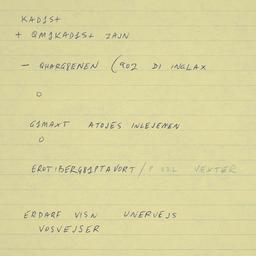 KAD1S+
+ QM1KAD1S+ ZAJN
- QHARG8ENEN (902 DI INGLAX
O
G1MAXT ATOJES INLEJEMEN
O
EROTIBERG81PTAVORT/ VEXTER
ERDARF VISN UNERVEJS
VOSVEJSER